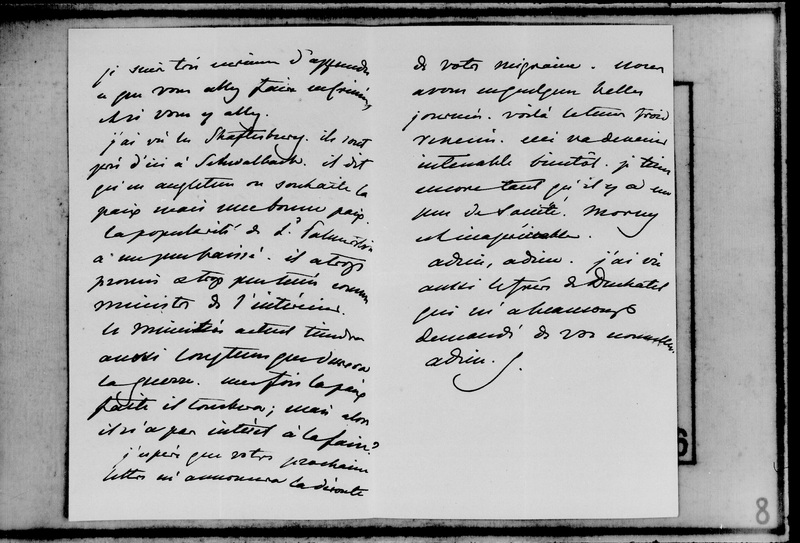 je suis très curieuse d'apprendre
ce que vous allez faire
et si vous y allez.
j'ai vu les Shaftesbury. ils sont
près d'ici à Schwalbach. il dit
qu'en angleterre on souhaite la
paix mais une bonne paix.
la popularité de Ld Palmerston
a un peu baissé. il a trop
promis et trop peu tenu comme
ministre de l'intérieur.
le ministère actuel tiendra
aussi longtems que durera
la guerre. une fois la paix
faite il tombera; mais alors
il n'a pas intérêt à la faire?
j'espère que votre prochaine
lettre m'annoncera la déroute
de votre migraine. nous
avons eu quelques belles
journées. voilà le tems froid
revenu. ceci va devenir
intenable bientôt. je tiens
encore tant qu'il y a un
peu de société. Morny
est inappréciable.
adieu, adieu. j'ai vu
aussi le frère de Duchatel
qui m'a beaucoup
demandé de vos nouvelles.
adieu.
8